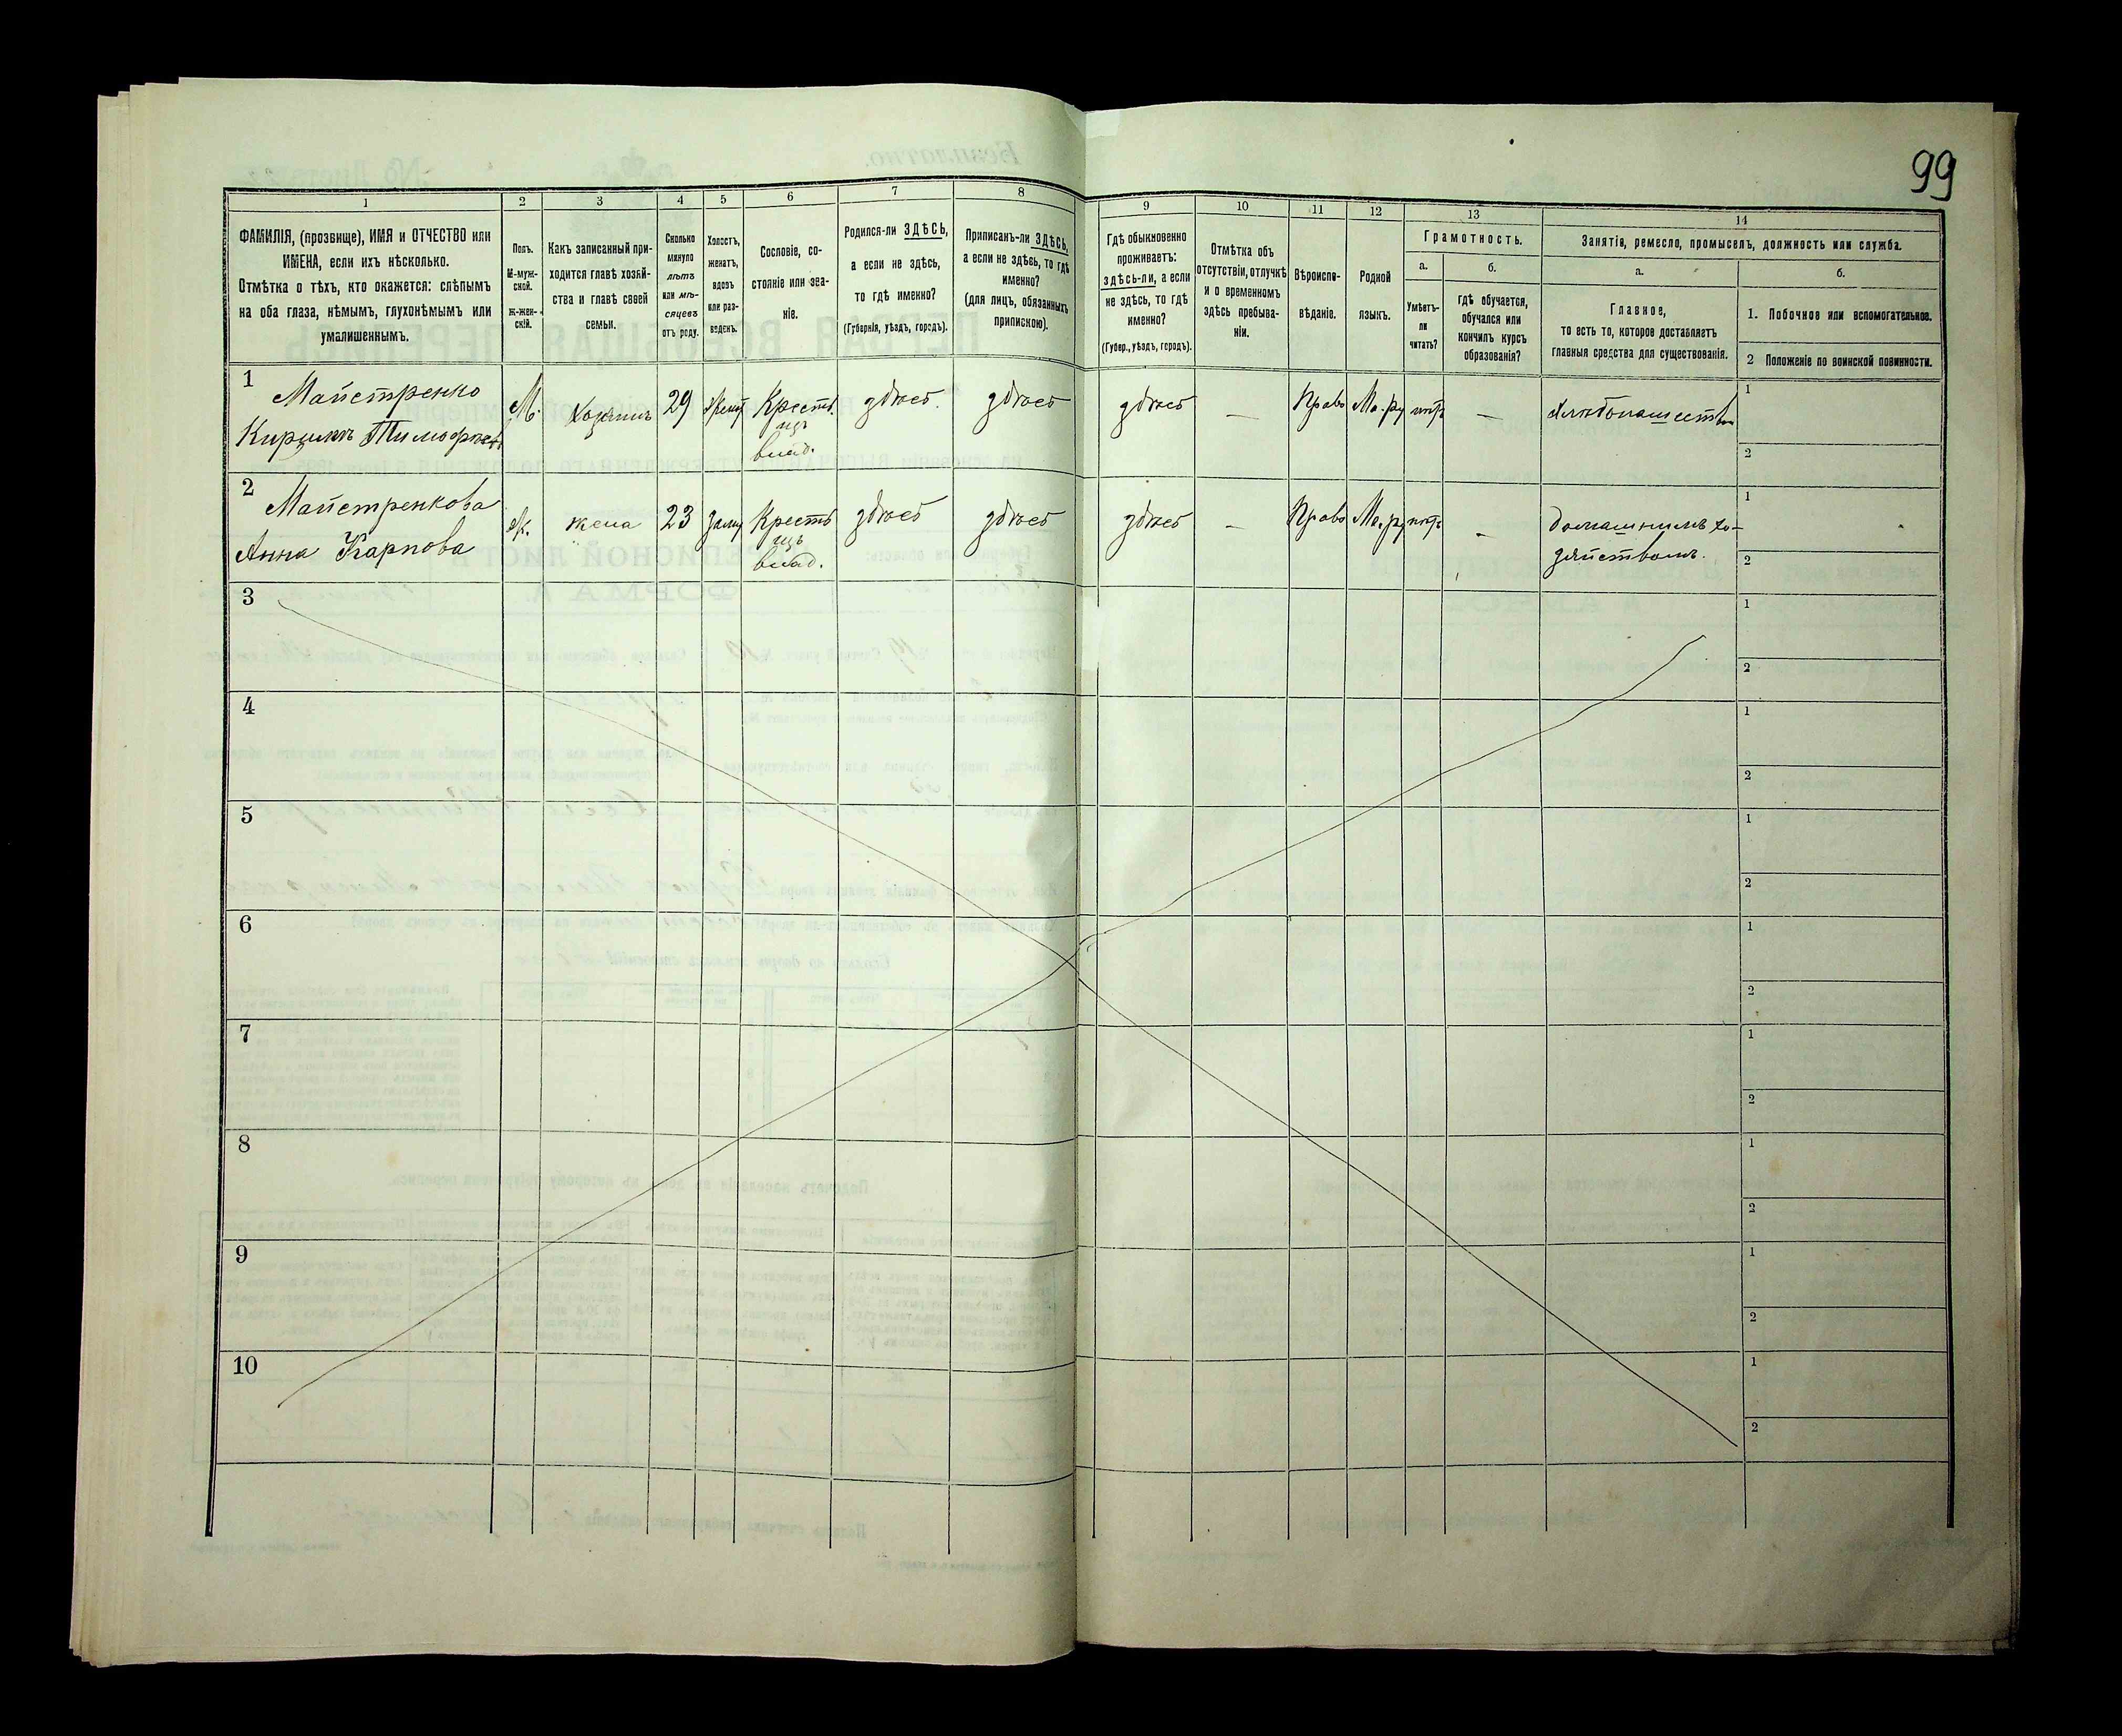 99
1
2
3
4
5
6
7
8
9
10
11
12
13
14
ФАМИЛІЯ, (прозвище), ИМЯ и ОТЧЕСТВО или
ИМЕНА, если ихъ нѣсколько.
Отмѣтка о тѣхъ, кто окажется: слѣпымъ
на оба глаза, нѣмымъ, глухонѣмымъ или
умалишеннымъ.
Полъ.
М-муж-
ской.
Ж-жен-
скій.
Какъ записанный при-
ходится главѣ хозяй-
ства и главѣ своей
семьи.
Сколько
минуло
лѣтъ
или мѣ-
сяцевъ
отъ роду.
Холостъ,
женатъ,
вдовъ
или раз-
веденъ.
Сословіе, со-
стояніе или зва-
ніе.
Родился-ли ЗДѢСЬ,
а если не здѣсь,
то гдѣ именно?
(Губернія, уѣздъ, городъ).
Приписанъ-ли ЗДѢСЬ,
а если не здѣсь, то гдѣ
именно?
(для лицъ, обязанныхъ
припискою).
Гдѣ обыкновенно
проживаетъ:
ЗДѢСЬ-ли, а если
не здѣсь, то гдѣ
именно?
(Губер., уѣздъ, городъ).
Отмѣтка объ
отсутствіи, отлучкѣ
и о временномъ
здѣсь пребыва-
ніи.
Вѣроиспо-
вѣданіе.
Родной
языкъ.
Грамотность.
а.
Умѣетъ-
ли
читать?
б.
гдѣ обучается,
обучался или
кончилъ курсъ
образованія?
Занятіе, ремесло, промыселъ, должность или служба.
а.
Главное,
то есть то, которое доставляетъ
главныя средства для существованія.
б.
1. Побочное или вспомогательное.
2 Положеніе по воинской повинности.
1
Майстренко
Кирилъ Тимофѣев
М.
Хозяинъ
29
Женат
Крестъ.
изъ
влад.
здѣсь
здѣсь
здѣсь
—
Право
Ма.ру
нѣтъ
—
Хлѣбопашество
1
2
2
Майстренкова
Анна Карпова
Ж.
жена
23
заму
Крестъ
изъ
влад.
здѣсь
здѣсь
здѣсь
—
Право
Ма.ру
нѣтъ
-
домашнимъ хо-
зяйствомъ.
1
2
3
1
2
4
1
2
5
1
2
6
1
2
7
1
2
8
1
2
9
1
2
10
1
2